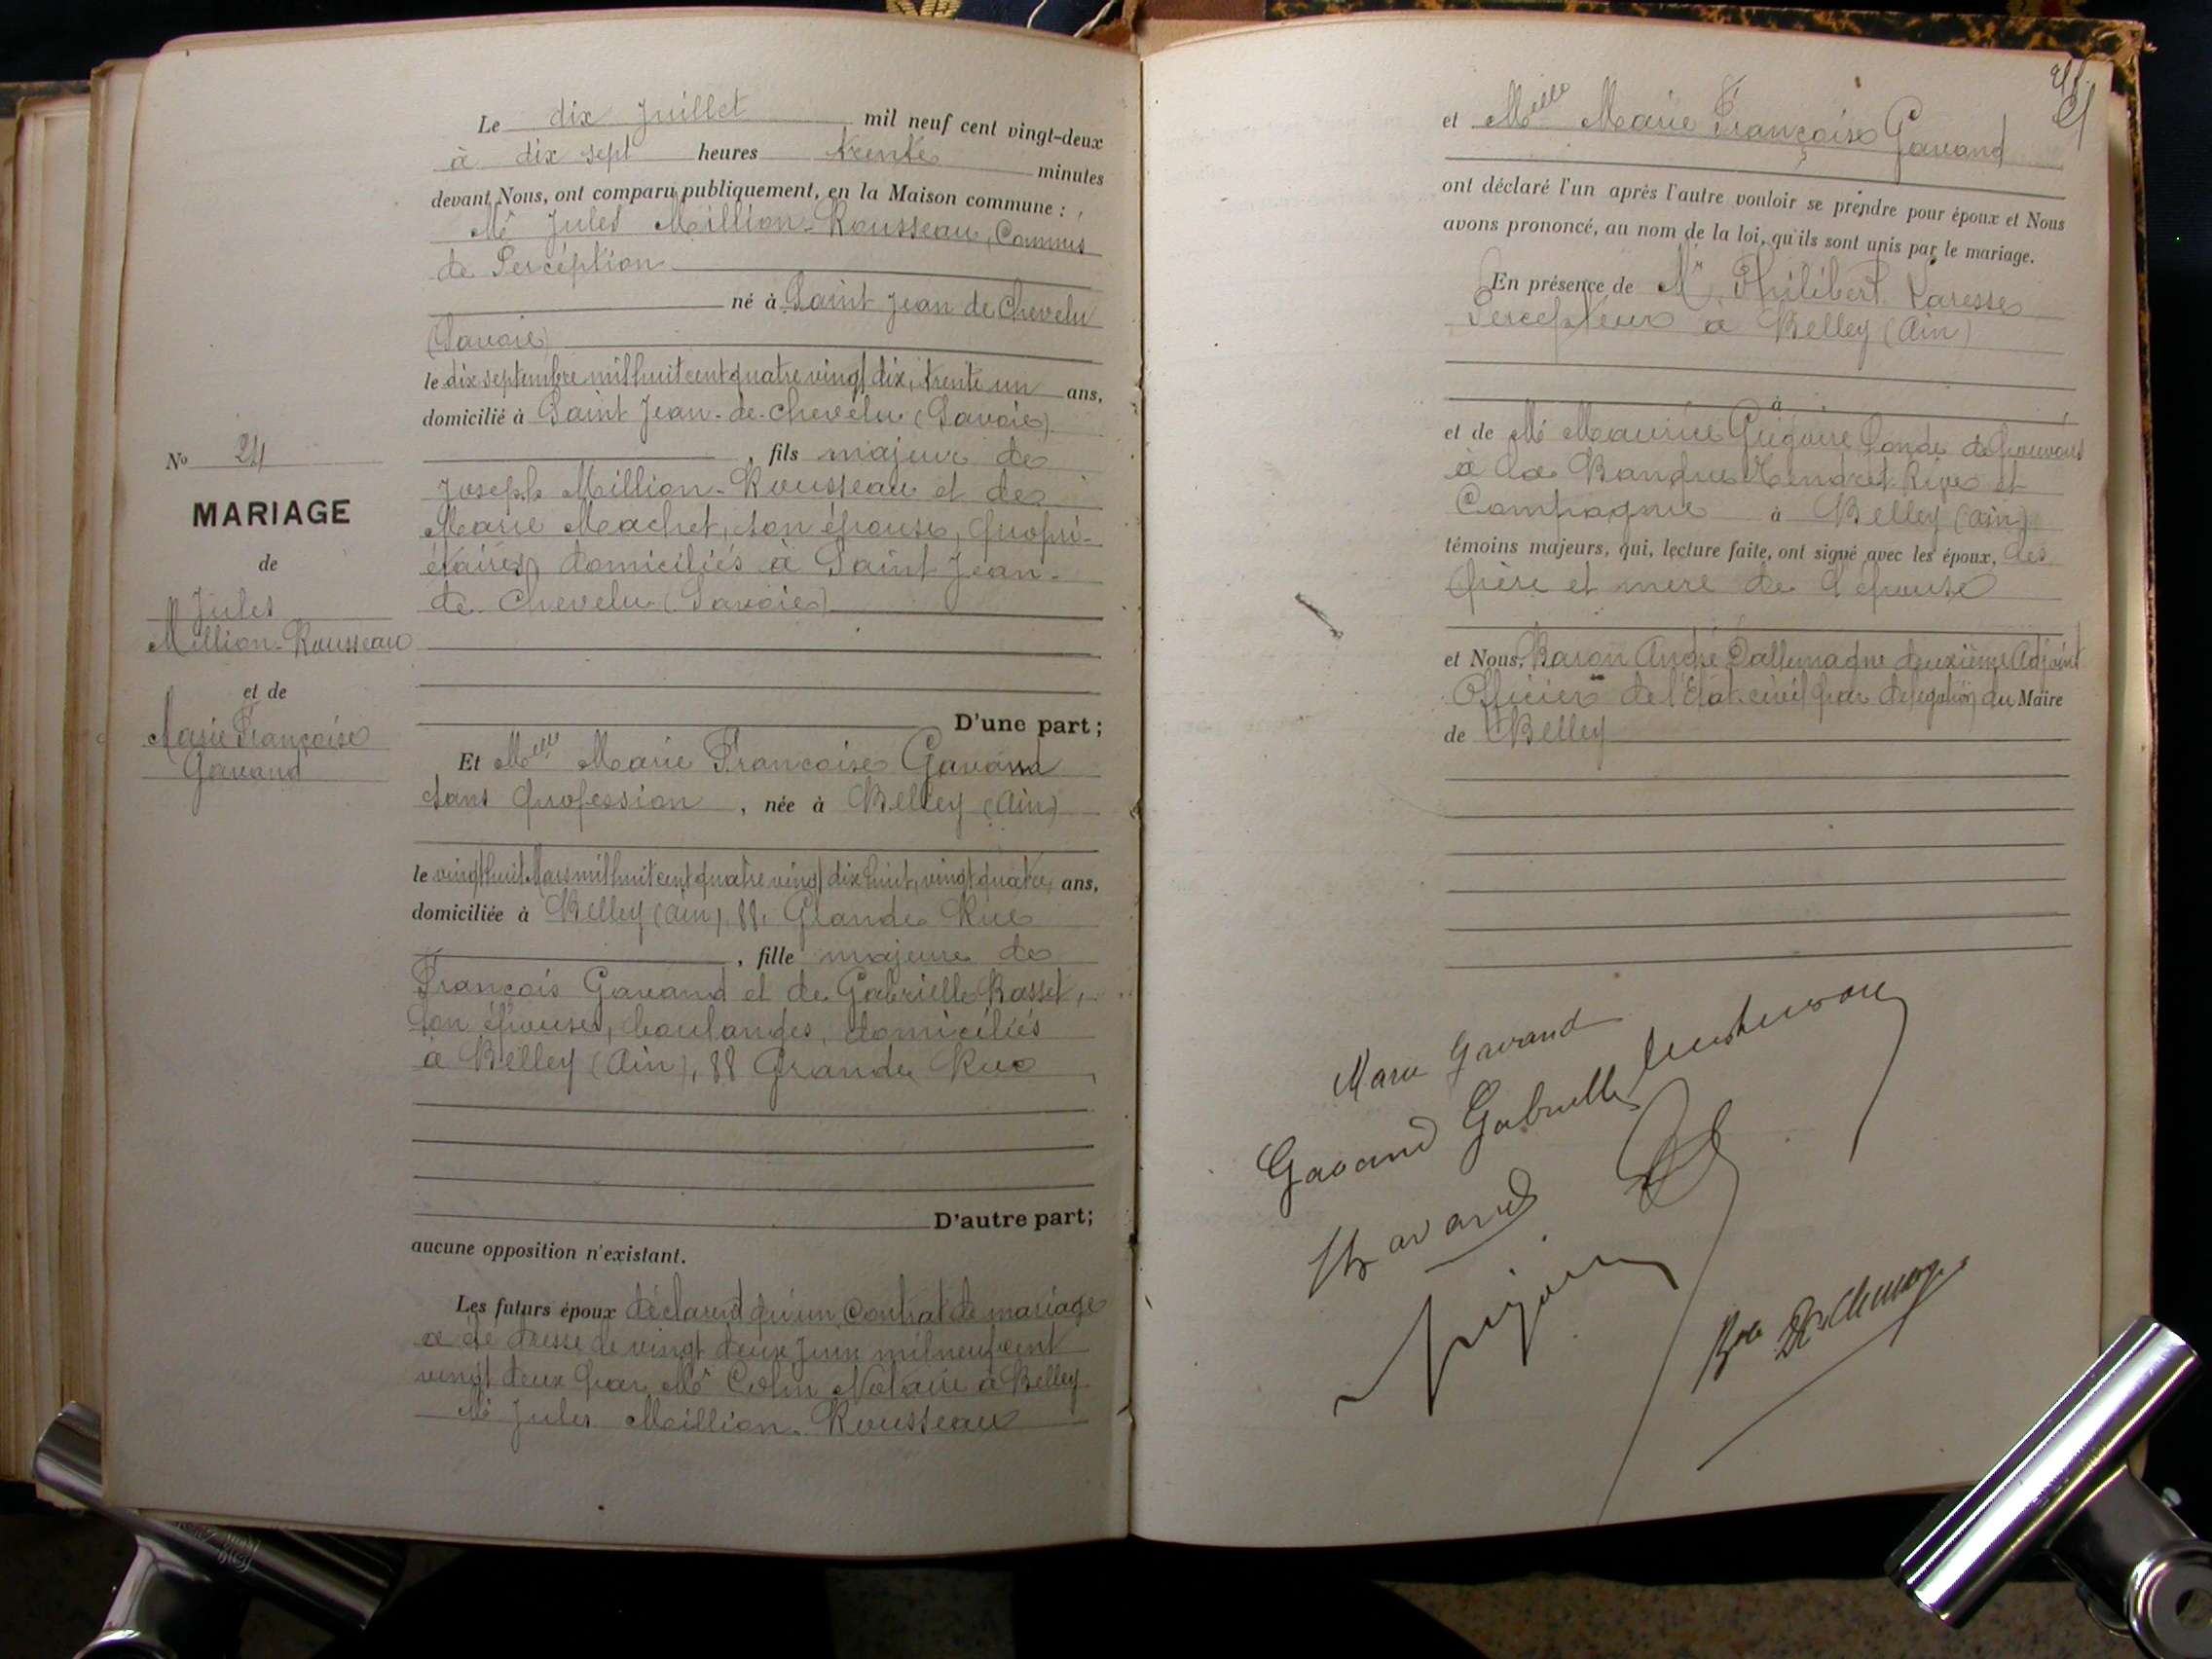 Le dix Juillet mil neuf cent vingt-deux
à dix sept heures trente minutes
devant Nous, ont comparu publiquement, en la Maison commune :
Mr Jules Million-Rousseau, Commis
de Perception
né à Saint Jean de Chevelu
(Savoie)
le dix septembre mil huit cent quatre vingt dix, trente un ans,
domicilié à Saint Jean-de-Chevelu (Savoie)
, fils majeur de
Joseph Million-Rousseau et de
Marie Machet, son épouse, propri-
étaires, domiciliés à Saint Jean-
de-Chevelu (Savoie)
D'une part ;
Et Melle Marie Francoise Gavand
sans profession, née à Belley (Ain)
le vingt huit Mars mil huit cent quatre vingt dix huit, vingt quatre ans,
domiciliée à Belley (Ain), 88, Grande Rue
, fille majeure de
François Gavand et de Gabrielle Rosset,
son épouse, boulangers, domiciliés
à Belley (Ain), 88 Grande Rue
D'autre part;
aucune opposition n'existant.
Les futurs époux déclarent qu'un Contrat de mariage
a été dressé le vingt deux Juin mil neuf cent
vingt deux par Me Colin Notaire à Belley
Mr Jules Million-Rousseau
No 24
MARIAGE
de
Jules
Million-Rousseau
et de
Marie Françoise
Gavand
et Melle Marie Françoise Gavand
ont déclaré l'un après l'autre vouloir se prendre pour époux et Nous
avons prononcé, au nom de la loi, qu'ils sont unis par le mariage.
En présence de Mr Philibert
Percepteur à Belley (Ain)
à
et de Mr Maurice Grégoire, fondé de pouvoirs
à la Banque et
Compagnie à Belley (Ain)
témoins majeurs, qui, lecture faite, ont signé avec les époux, des
père et mère de l'épouse
et Nous, Baron André Dallemagne deuxième Adjoint
Officier de l'Etat-civil par délégation du Maire
de Belley
Marie Gavand
Gavand Gabrielle
Gavand
Bon Dallemagne